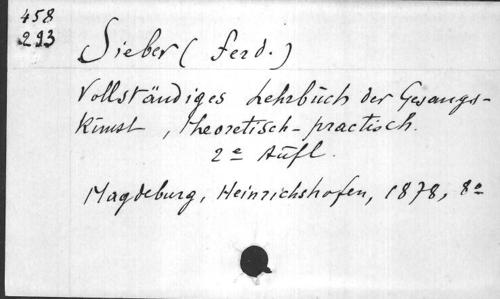 458
293
Sieber (Ferd.)
Vollständiges Lehrbuch der Gesangs-
Kunst, theoretisch-practisch.
2e Aufl.
Magdeburg, Heinrichshofen, 1878, 8º